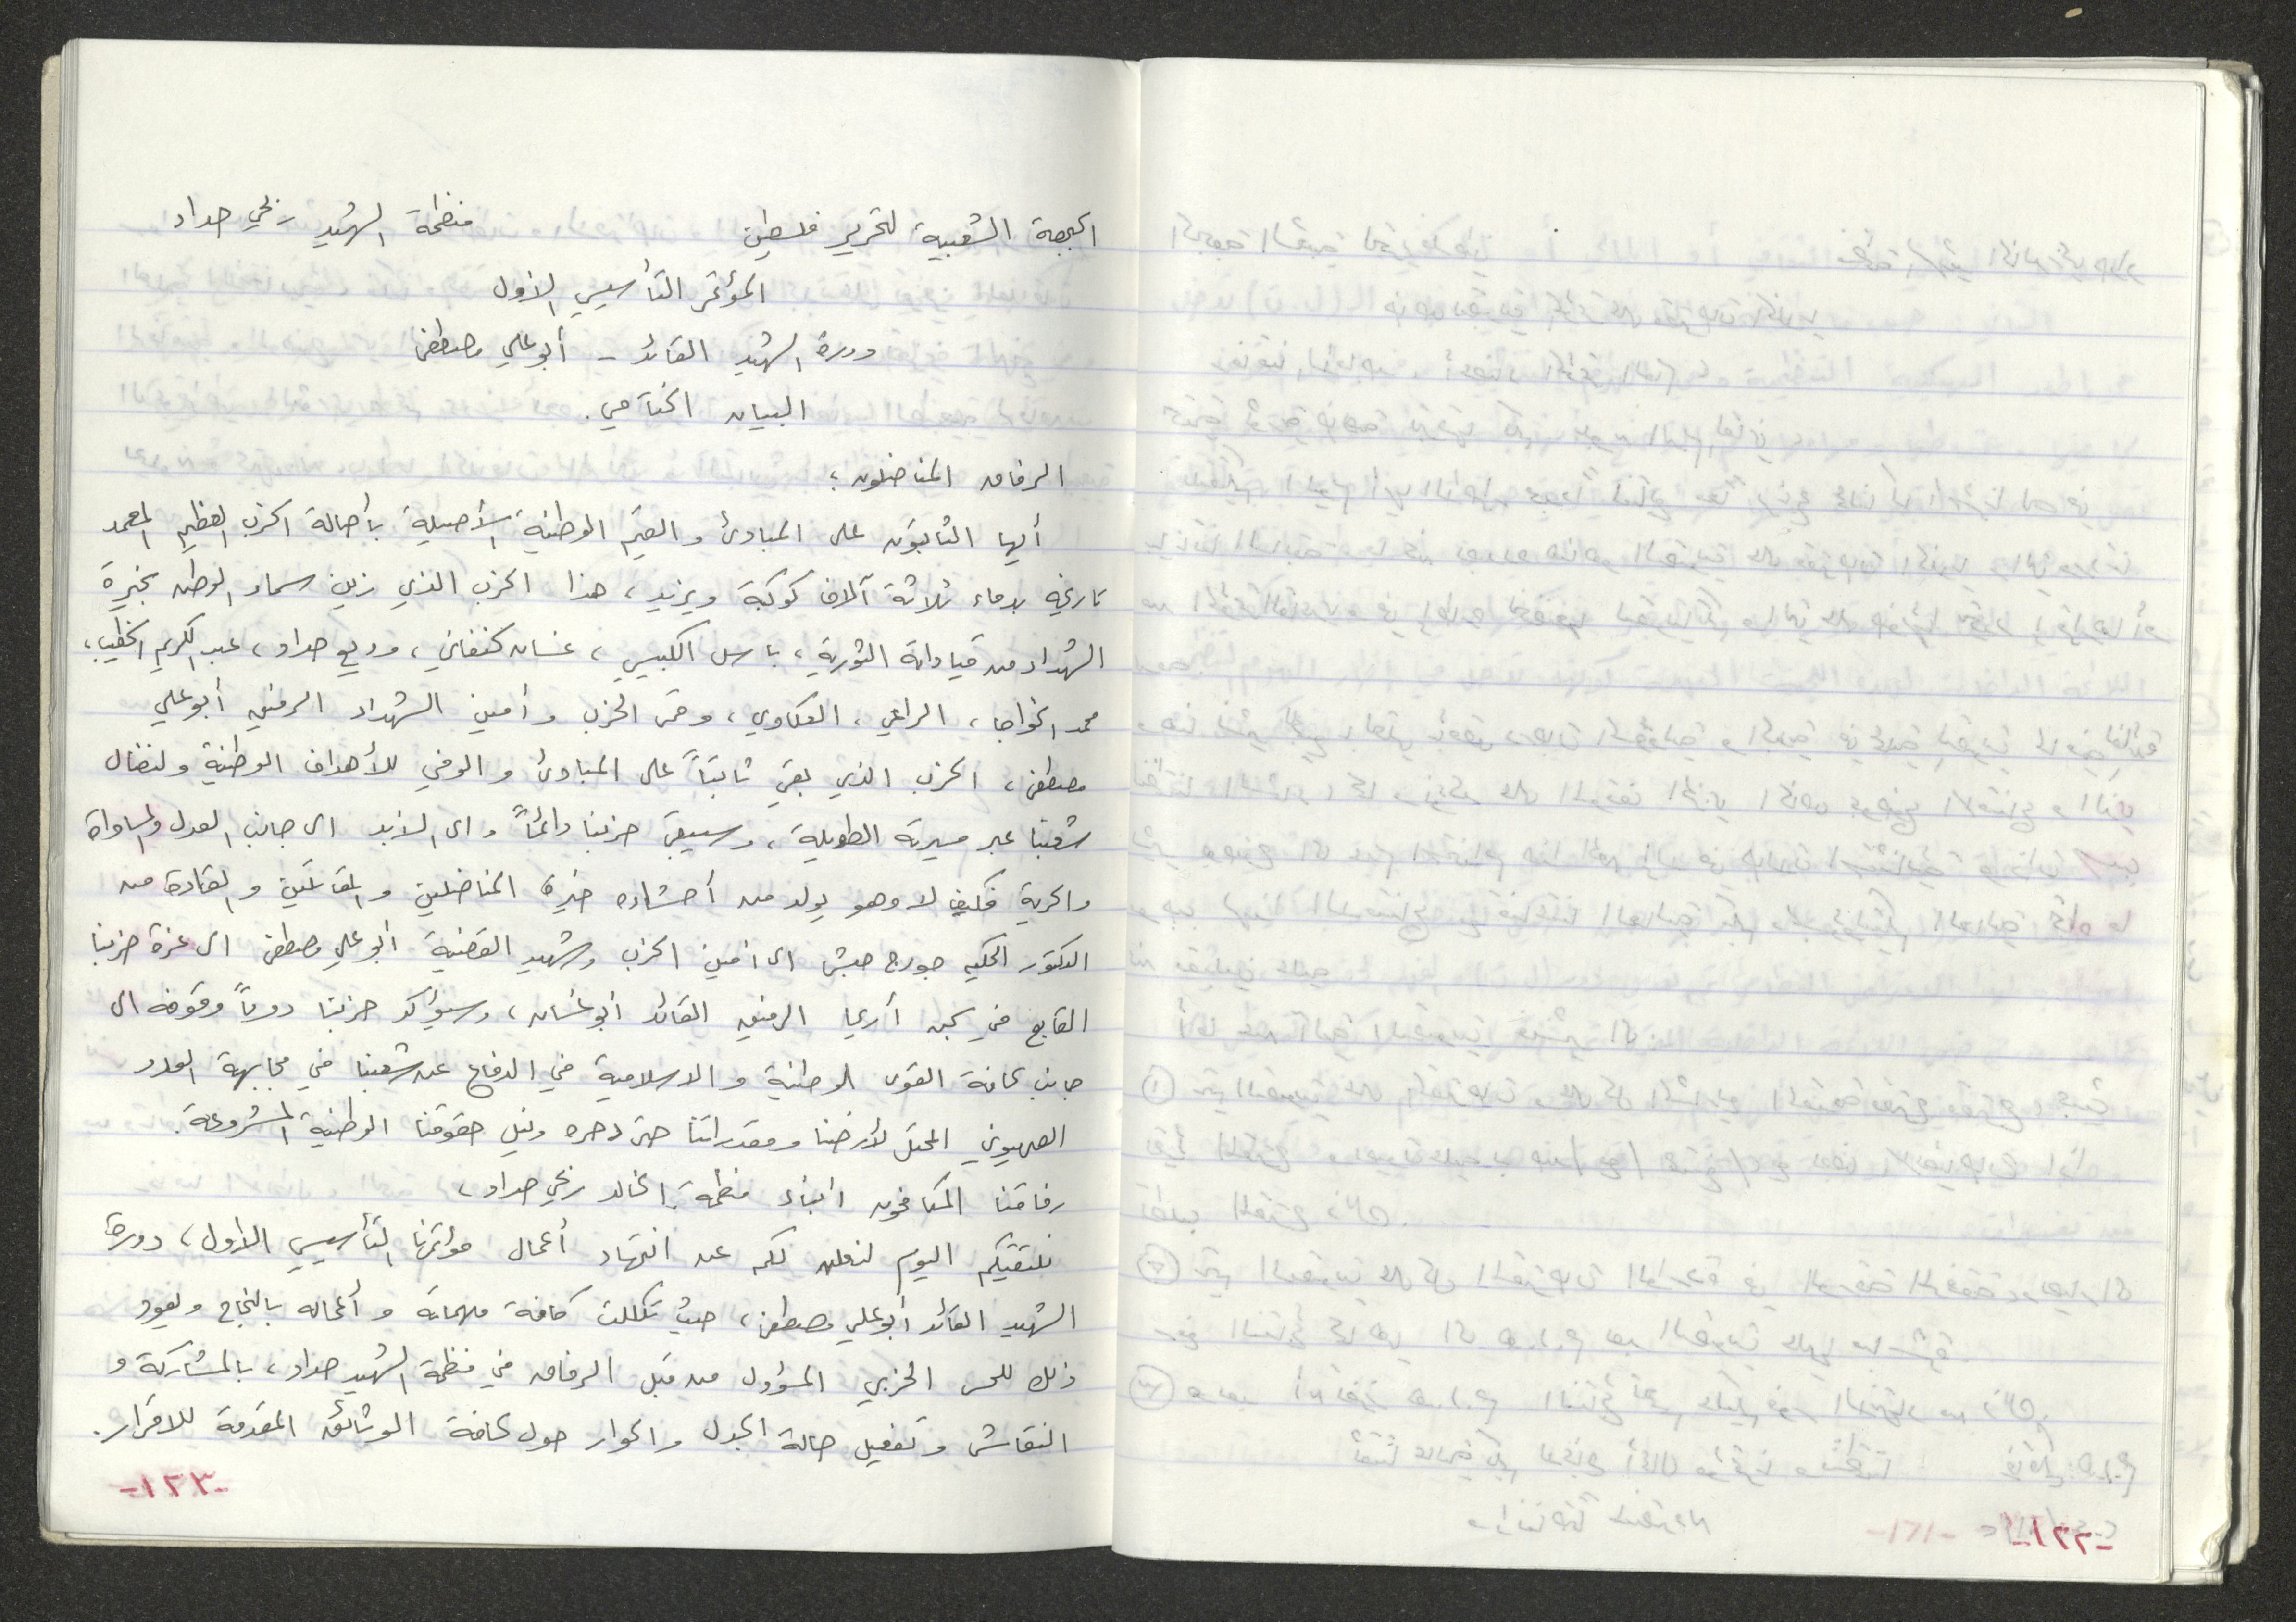 الجبهة الشعبية لتحرير فلسطين منظمة الشهيد ربحي حداد
المؤتمر التأسيسي الأول
دورة الشهيد القائد - أبو علي مصطفى
البيان الختامي.
الرفاق المناضلون؛
أيها الثابتون على المبادئ والقيم الوطنية الأصيلة بأصالة الحزب العظيم المعمد
تاريخه بدماء ثلاثة آلاف كوكبة ويزيد، هذا الحزب الذي زين سماء الوطن بخيرة
الشهداء من قياداته الثورية، باسل الكبيسي، غسان كنفاني، وديع حداد، عبد الكريم الخطيب،
محمد الخواجا، الراعي، العكاوي، وقمر الحزب وأمين الشهداء الرفيق أبو علي
مصطفى، الحزب الذي بقي ثابتاً على المبادئ والوفي للأهداف الوطنية ولنضال
شعبنا عبر مسيرته الطويلة، وسيبقى حزبنا دائماً والى الابد الى جانب العدل والمساواة
والحرية فكيف لا وهو يولد من أحشاءه خيرة المناضلين والمقاتلين والقادة من
الدكتور الحكيم جورج حبش الى امين الحزب وشهيد القضية أبو علي مصطفى الى عزة حزبنا
القابع في سجن أريحا الرفيق القائد أبو غسان، وسيؤكد حزبنا دوماً وقوفه الى
جانب كافة القوى الوطنية والاسلامية في الدفاع عن شعبنا في مجابهة العدو
الصهيوني المحتل لأرضنا ومقدراتنا حتى دحره ونيل حقوقنا الوطنية المشروعة.
رفاقنا المكافحون أبناء منظمة الخالد ربحي حداد،
نلتقيكم اليوم لنعلن لكم عن انتهاء أعمال مؤتمرنا التأسيسي الأول، دورة
الشهيد القائد أبو علي مصطفى، حيث تكللت كافة مهماته وأعماله بالنجاح ويعود
ذلك للحس الحزبي المسؤول من قبل الرفاق في منظمة الشهيد حداد، بالمشاركة و
النقاش وتفعيل حالة الجدل والحوار حول كافة الوثائق المقدمة للاقرار.
-١٢٣-
-١٢٢-